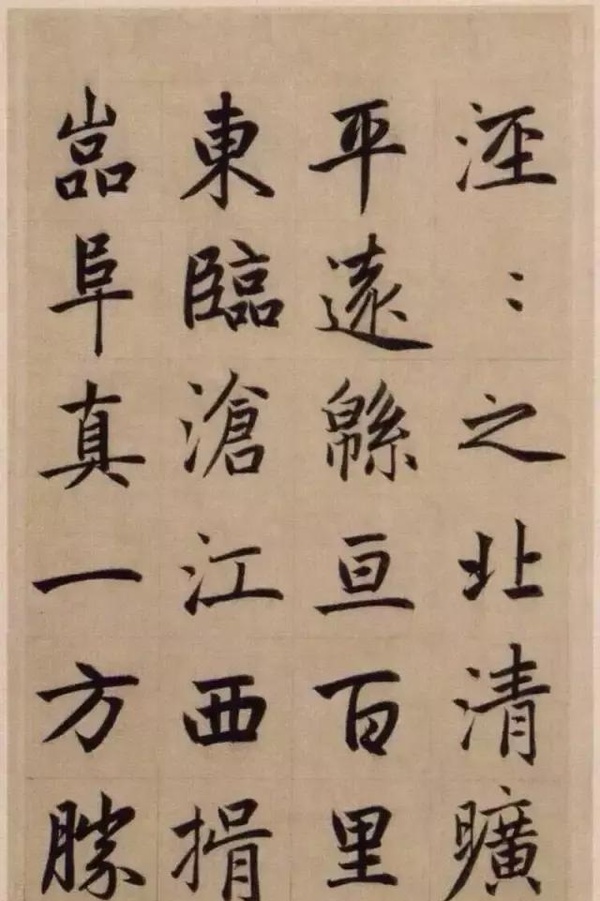 涇：之北清曠
平遠緜亘百里
東臨滄江西揖
嵓阜真一方勝